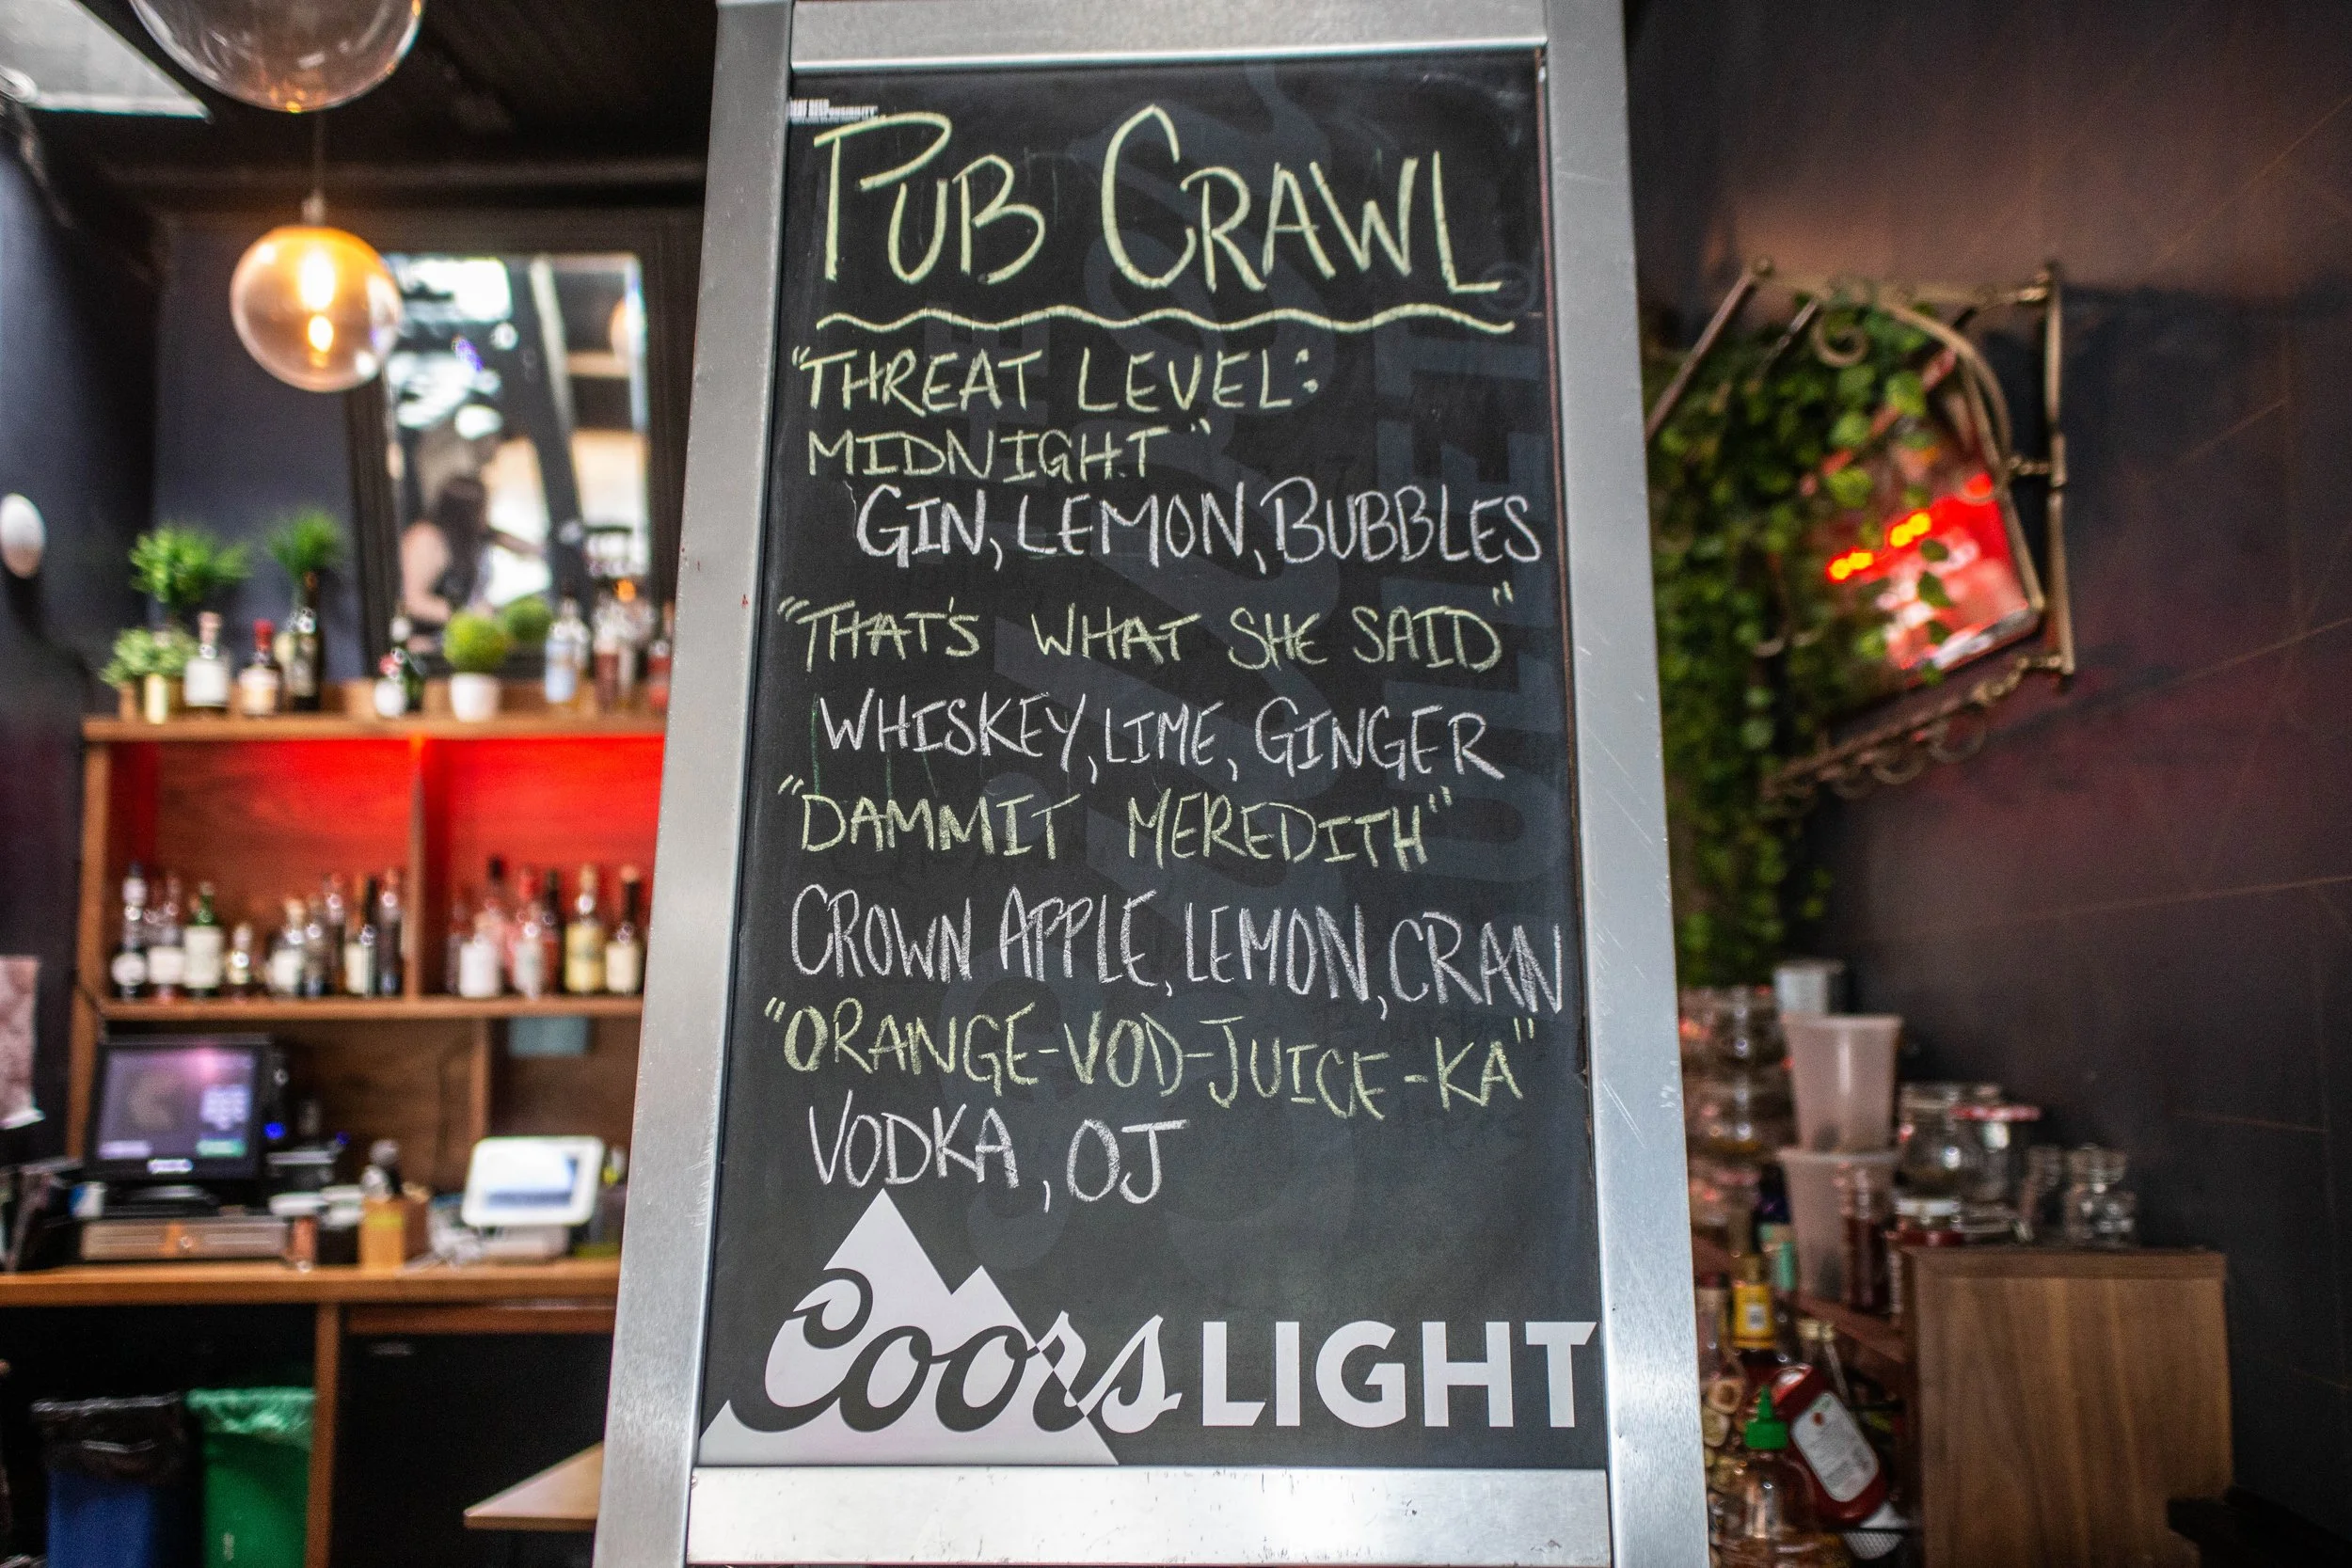 PUB CRAWL
"THREAT LEVEL:
MIDNIGHT"
GIN, LEMON, BUBBLES
"THAT'S WHAT SHE SAID"
WHISKEY, LIME, GINGER
"DAMMIT MEREDITH"
CROWN APPLE, LEMON, CRAN
"ORANGE-VOD-JUICE-KA"
VODKA, OJ
Coors LIGHT